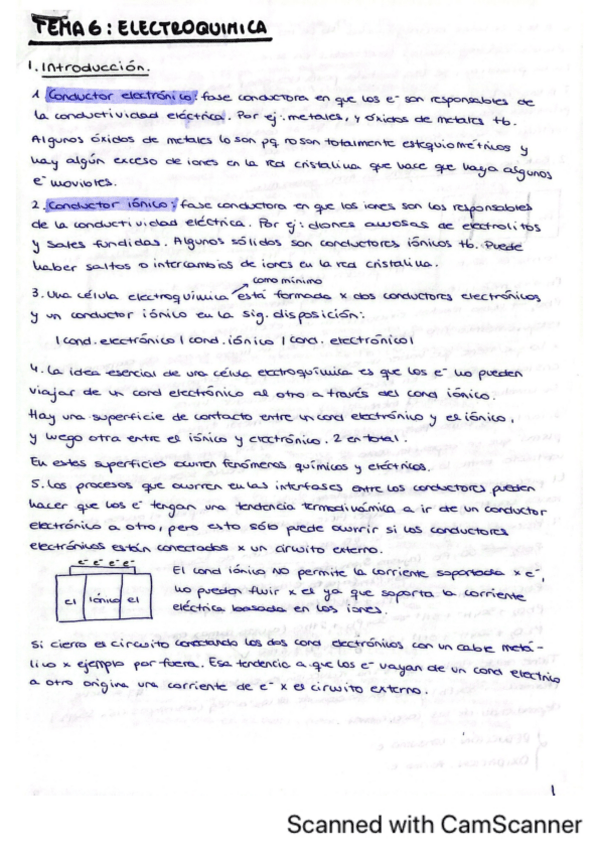 TEMA 6: ELECTROQUIMICA
1. Introducción.
1. Conductor electrónico: fase conductora en que los e⁻ son responsables de
la conductividad eléctrica. Por ej: metales, y óxidos de metales tb.
Algunos óxidos de metales lo son pq no son totalmente estequiométricos y
hay algún exceso de iones en la red cristalina que hace que haya algunos
e⁻ moviles.
2. Conductor iónico: fase conductora en que los iones son los responsables
de la conductividad eléctrica. Por ej: dones acuosas de electrolitos
y sales fundidas. Algunos sólidos son conductores iónicos tb. Puede
haber saltos o intercambios de iones en la red cristalina.
como mínimo
3. Una célula electroquímica está formada x dos conductores electrónicos
y un conductor iónico en la sig. disposición:
| cond. electrónico | cond. iónico | cond. electrónico |
4. La idea esencial de una célula electroquímica es que los e⁻ no pueden
viajar de un cond electrónico al otro a través del cond iónico.
Hay una superficie de contacto entre un cond electrónico y el iónico,
y luego otra entre el iónico y electrónico. 2 en total.
En estas superficies ocurren fenómenos químicos y eléctricos.
5. Los procesos que ocurren en las interfases entre los conductores pueden
hacer que los e⁻ tengan una tendencia termodinámica a ir de un conductor
electrónico a otro, pero esto sólo puede ocurrir si los conductores
electrónicos están conectados x un circuito externo.
e⁻ e⁻ e⁻ e⁻
el iónico el
El cond iónico no permite la corriente soportada x e⁻,
no pueden fluir x el ya que soporta la corriente
eléctrica basada en los iones.
Si cierro el circuito conectando los dos cond electrónicos con un cable metá-
lico x ejemplo por fuera. Esa tendencia a que los e⁻ vayan de un cond electrico
a otro origina una corriente de e⁻ x el circuito externo.
1
Scanned with CamScanner